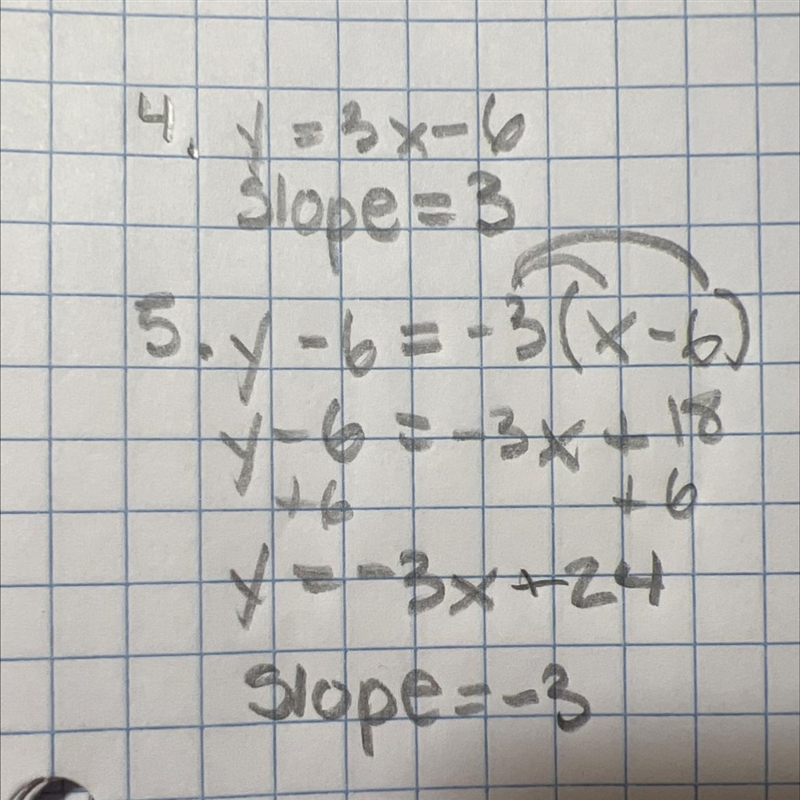 4. y = 3x - 6
Slope = 3
5. y - 6 = -3(x - 6)
y - 6 = -3x + 18
+6 +6
y = -3x + 24
Slope = -3